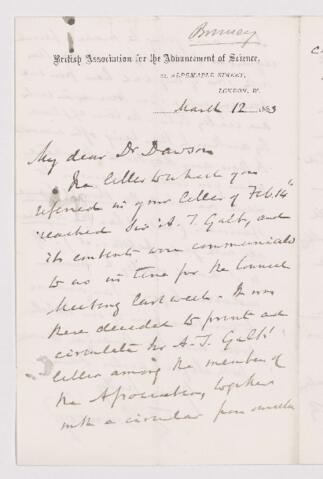 Bonney
British Association for the Advancement of Science,
22, ALBEMARLE STREET,
LONDON, W.
March 12 1883
My dear Dr Dawson
The letter to which you
referred in your letter of Feb. 14th
reached Sir A. T. Galt, and
its contents were communicated
to us in time for the Council
Meeting last week. It was
there decided to print and
circulate Sir A. T. Galt's
letter among the members of
the Association, together
with a circular from ourselves